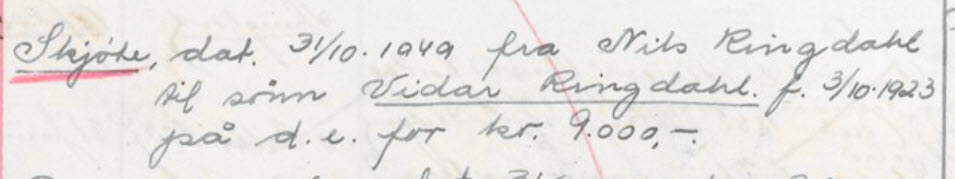 Skjøte, dat. 31/10.1949 fra Nils Ringdahl
til sønn Vidar Ringdahl. f. 3/10.1923
på d.e. for kr. 9.000,-